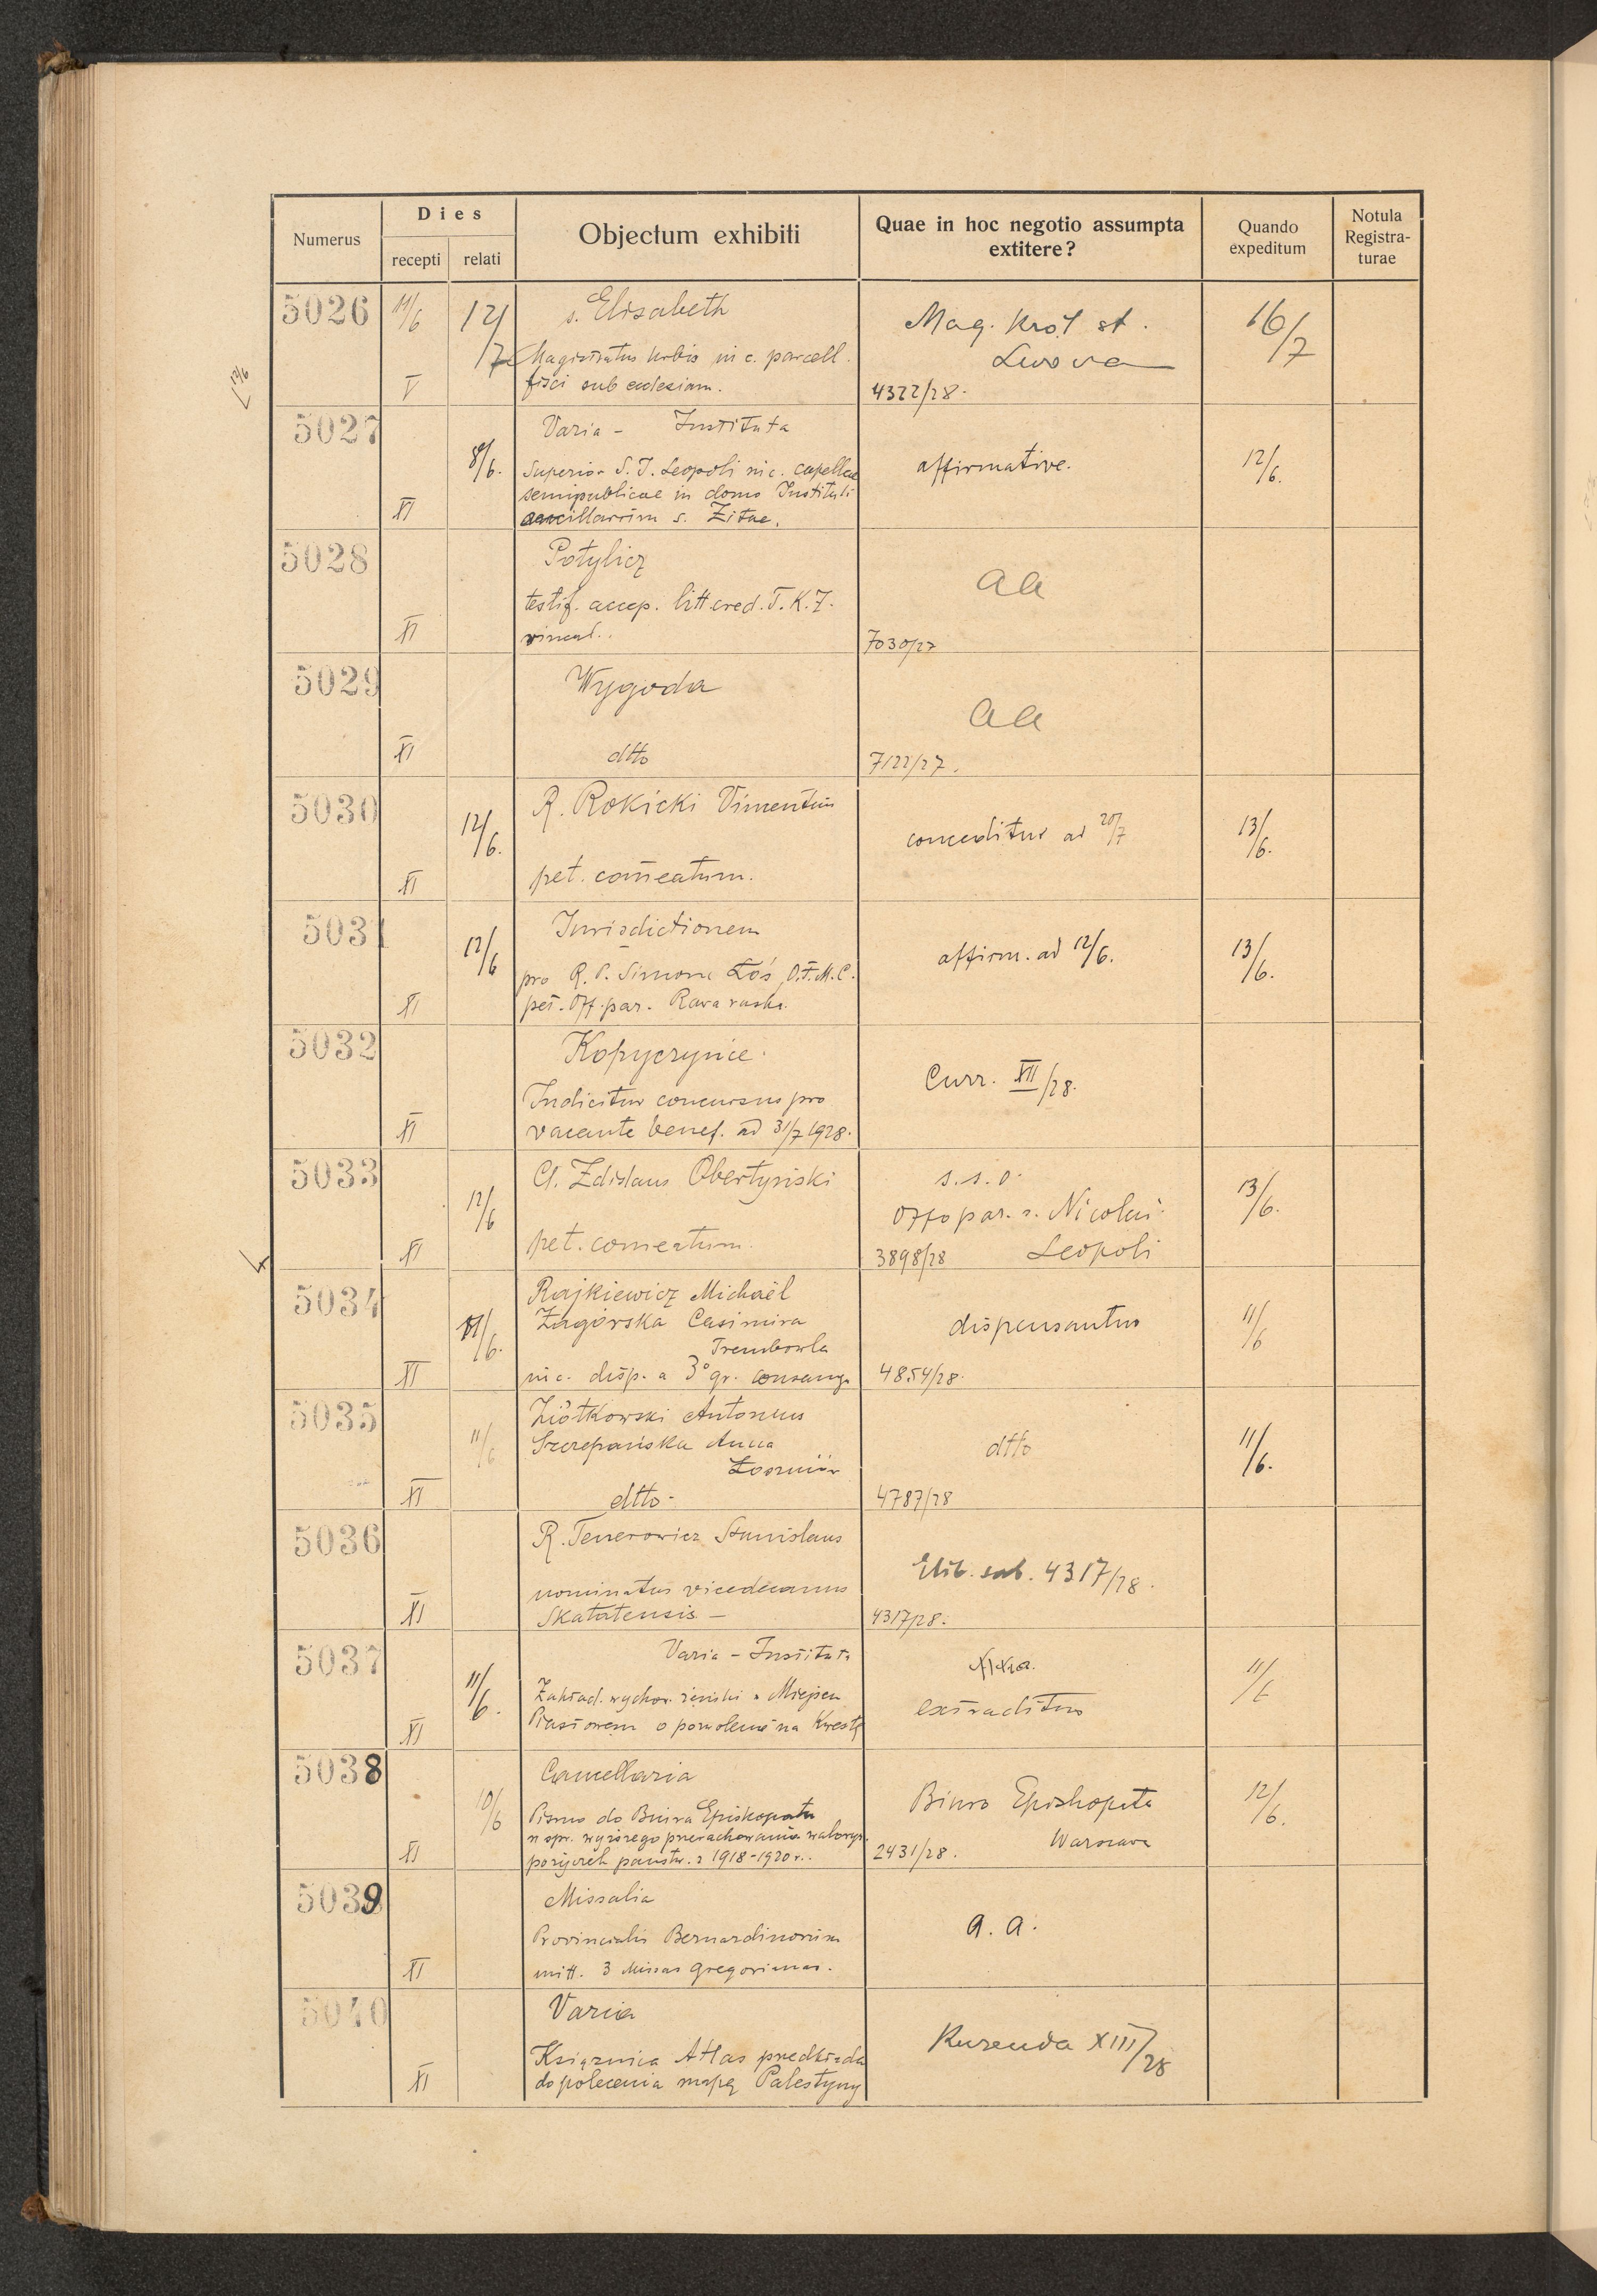 Numerus
Dies
recepti
relati
Objectum exhibiti
Quae in hoc negotio assumpta
extitere?
Quando
expeditum
Notula
Registra-
turae
12/6
5026
11/6
V
12/
/7
s. Elisabeth
Magistratus urbis in c. parcell.
fisci sub ecclesiam.
Mag. Król st.
Lwowa
4322/28.
16/7
5027
XI
8/6.
Varia - Instituta
Superior S. J. Leopoli in c. capellae
semipublicae in domo Instituti
ancillarum s. Zitae.
affirmative.
12/6.
5028
XI
Potylicz
testif. accep. litt. cred. T. K. Z.
vincul.
aa
7030/27
5029
XI
Wygoda
dtto
aa
7122/27.
5030
XI
12/6.
R. Rokicki Vincentius
pet. comeatum.
conceditur ad 20/7
13/6.
5031
XI
12/6
Jurisdictionem
pro R. P. Simone Łoś, O.F.M.C.
pet. Off. par. Rava ruska.
affirm. ad 12/6.
13/6.
5032
XI
Kopyczynce.
Indicitur concursus pro
vacante benef. ad 31/7 1928.
Curr. XII/28.
5033
XI
12/6
Cl. Zdislaus Obertyński
pet. comeatum.
s. s. o.
Offo par. s. Nicolai
Leopoli
3898/28
13/6.
5034
XI
11/6.
Rajkiewicz Michaël
Zagórska Casimira
Trembowla
in c. disp. a 3° gr. consang.
dispensantur
4854/28.
11/6
5035
XI
11/6
Ziółkowski Antonius
Szczepańska Anna
Łoszniów
dtto.
dtto
4787/28
11/6.
5036
XI
R. Tenerowicz Stanislaus
nominatus vicedecanus
Skałatensis -
Elib. sub. 4317/28.
4317/28.
5037
XI
11/6.
Varia - Instituta
Zakład. wychow. żeński w Miejscu
Piastowem o pozwolenie na kwestę
extraditur
11/6
5038
XI
10/6
Cancellaria
Pismo do Biura Episkopatu
w spr. wyższego przerachowania waloryz.
pożyczek państw. z 1918-1920 r.
Biuro Episkopatu
Warszawa
2431/28.
12/6.
5039
XI
Missalia
Provincialis Bernardinorum
mitt. 3 Missas gregorianas.
a. a.
5040
XI
Varia
Książnica Atlas przedkłada
do polecenia mapę Palestyny
Kurenda XIII/28